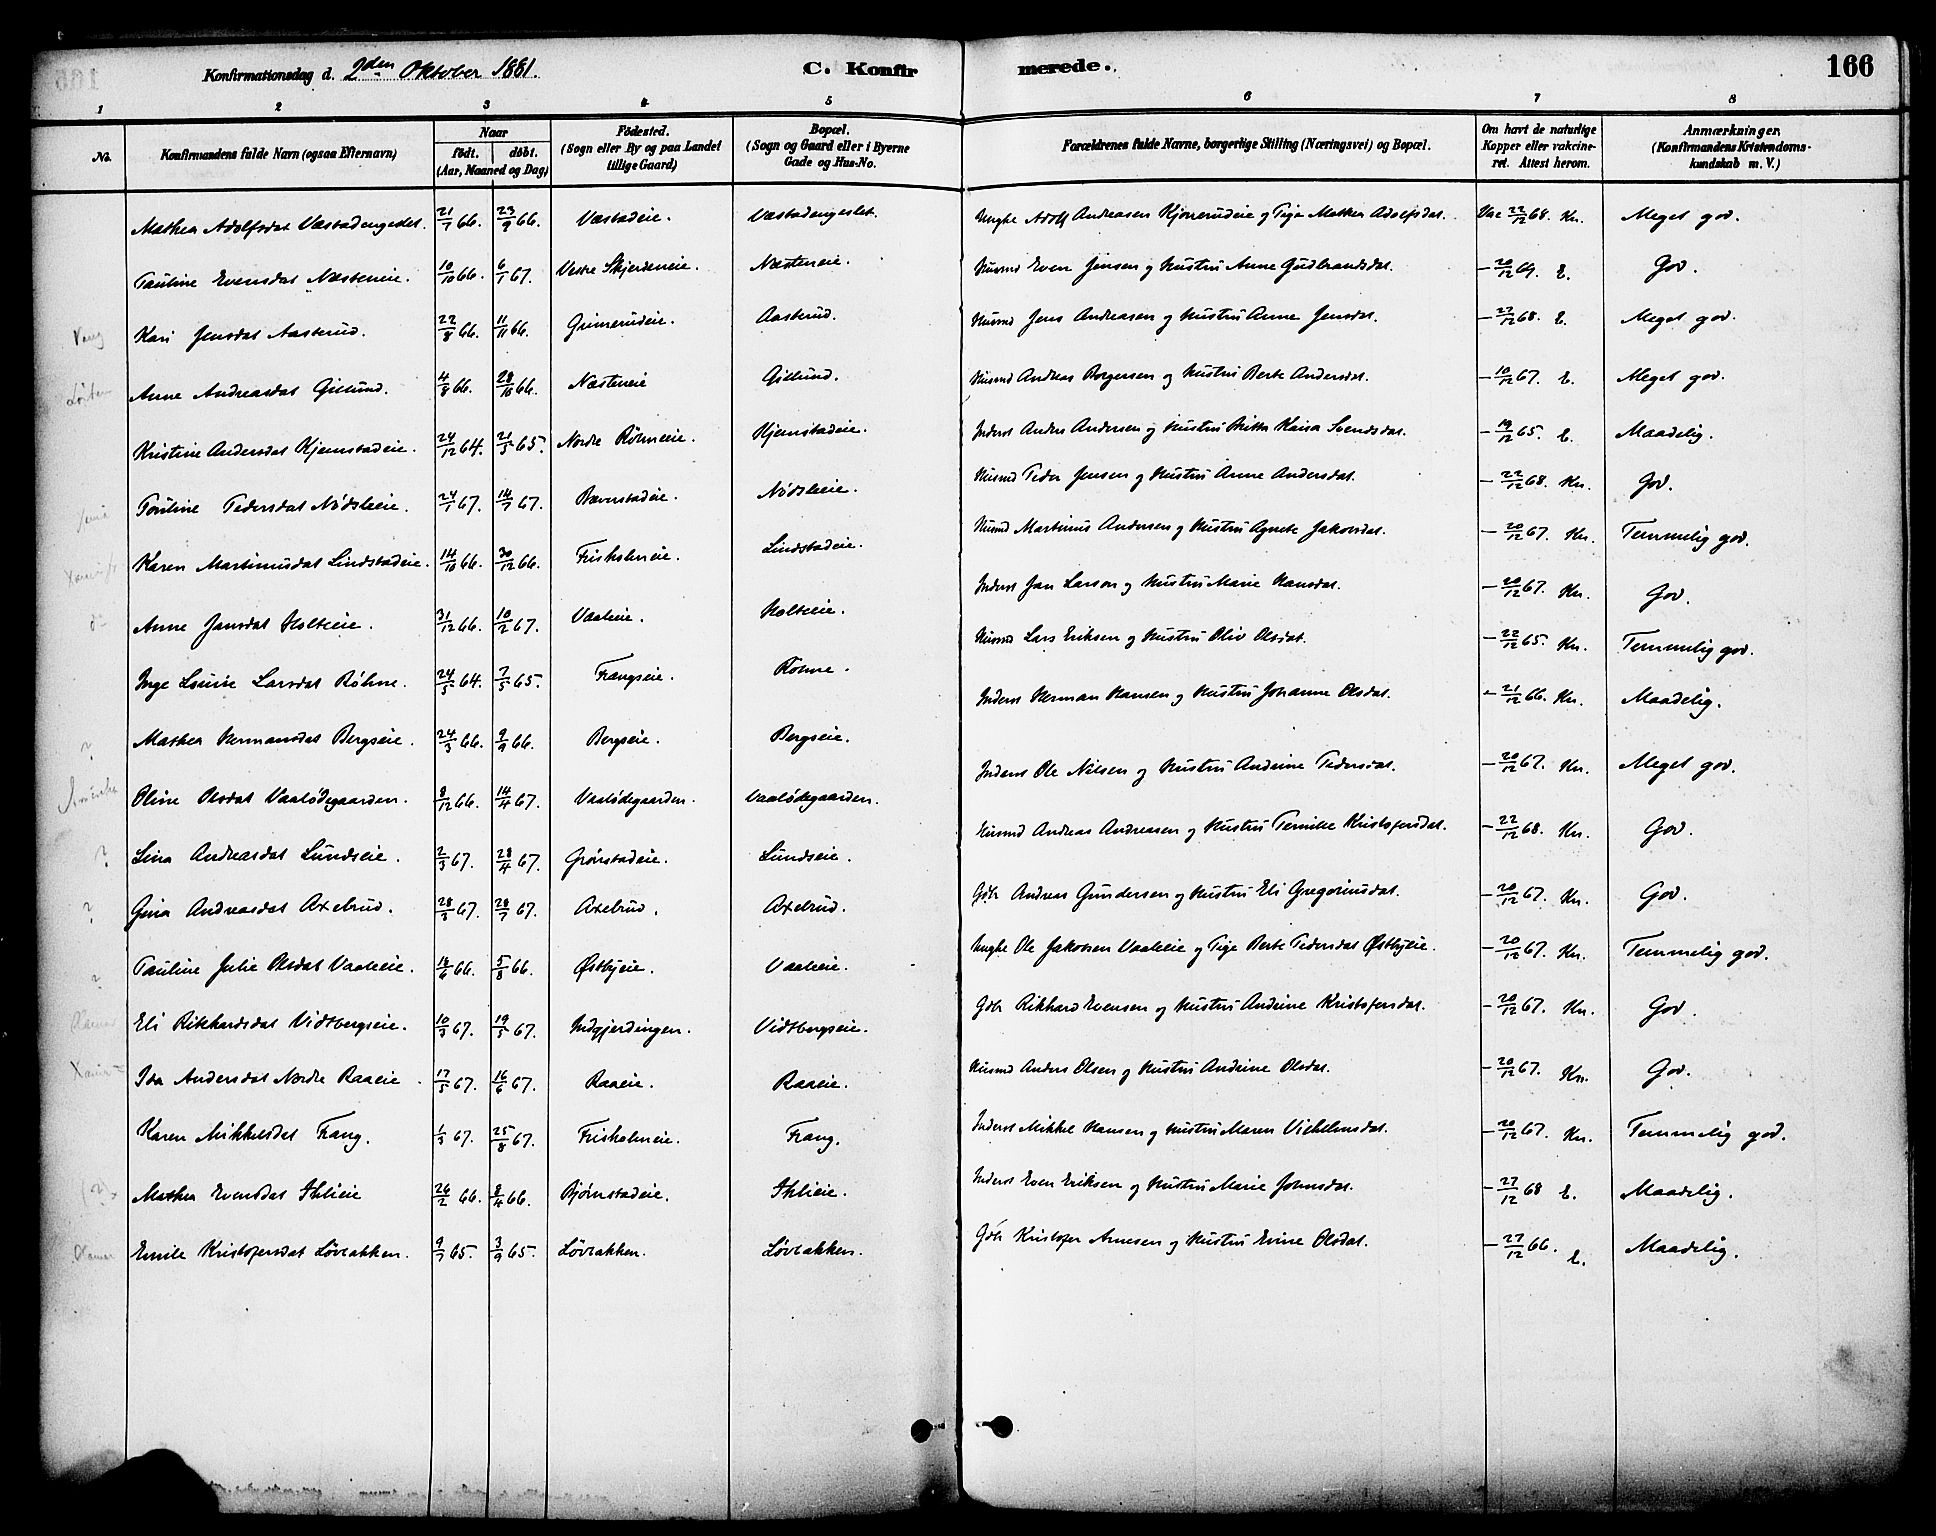 Konfirmationsdag d. 2den Oktober 1881. C. Konfirmerede. 166
1 2 3 4 5 6 7 8
No. Konfirmandens fulde Navn (ogsaa Efternavn) Naar født. døbt. (Aar, Maaned og Dag) Fødested. (Sogn eller By og paa Landet tillige Gaard) Bopæl. (Sogn og Gaard eller i Byerne Gade og Hus-No. Forældrenes fulde Navne, borgerlige Stilling (Næringsvei) og Bopæl. Om havt de naturlige Kopper eller vakcineret. Attest herom. Anmærkninger. (Konfirmandens Kristendomskundskab m. V.)
Mathea Adolfsdat Væstadengeslet. 21/7 66. 23/9 66. Væstadeie. Væstadengeslet. Ungke Adolf Andreasen Kjonerudeie og Pige Mathea Adolfsdat. Vac 22/12 68. Kn. Meget god.
Pauline Evensdat Næsteneie. 10/10 66. 6/1 67. Vestre Skjerdeneie. Næsteneie. Husmd Even Jensen og Hustru Anne Gudbrandsdat. – 20/12 69. E. God.
Vang Kari Jensdat Aasterud. 22/8 66. 11/11 66. Grimerudeie. Aasterud. Husmd Jens Andreasen og Hustru Anne Jensdat. – 27/12 68. E. Meget god.
Løiten Anne Andreasdat Gillund. 4/8 66. 28/10 66. Næsteneie Gillund. Husmd Andreas Borgersen og Hustru Berte Andersdat. – 10/12 67. E. Meget god.
Kristine Andersdat Kjemstadeie. 24/12 64. 21/5 65. Nordre Röhneeie. Kjemstadeie. Inderst Anders Andersen og Hustru Britta Kaisa Svendsdat. – 19/12 65. E. Maadelig.
Pauline Pedersdat Nødsleeie. 24/1 67. 14/7 67. Bæverstadeie. Nødsleeie. Husmd Peder Jensen og Hustru Anne Andersdat. – 22/12 68. Kn. God.
Karen Martinusdat Lindstadeie. 14/10 66. 30/12 66. Frisholmeie. Lindstadeie. Husmd Martinus Andersen og Hustru Agnete Jakobsdat. – 20/12 67. Kn. Temmelig god.
Anne Jansdat Holteeie. 31/12 66. 10/2 67. Vaaleeie. Holteeie. Inderst Jan Larson og Hustru Marie Hansdat. – 20/12 67. Kn. God.
Inge Louise Larsdat Röhne. 24/5 64. 7/5 65. Frangseie. Röhne. Husmd Lars Eriksen og Hustru Oliv Olsdat. – 22/12 65. Kn. Temmelig god.
? Mathea Hermansdat Bergseie. 24/3 66. 9/9 66. Bergseie. Bergseie. Inderst Herman Hansen og Hustru Johanne Olsdat. – 21/12 66. Kn. Maadelig.
Oline Olsdat Vaalødegaarden. 8/12 66. 14/4 67. Vaalødegaarden. Vaalødegaarden. Inderst Ole Nilsen og Hustru Andrine Pedersdat. – 20/12 67. Kn. Meget god.
? Lina Andreasdat Lundseie. 2/3 67. 28/4 67. Grönstadeie. Lundseie. Husmd Andreas Andreasen og Hustru Pernille Kristofersdat. – 22/12 68. Kn. God.
? Gina Andreasdat Axelrud. 28/3 67. 28/7 67. Axelrud. Axelrud. Gdbr Andreas Gundersen og Hustru Eli Gregoriusdat. – 20/12 67. Kn. God.
? Pauline Julie Olsdat Vaaleeie. 18/6 66. 5/8 66. Østbyeie. Vaaleeie. Ungke Ole Jakobsen Vaaleeie og Pige Berte Pedersdat Østbyeie. – 20/12 67. Kn. Temmelig god.
Eli Rikhardsdat Vidtbergseie. 10/3 67. 19/5 67. Indgjerdingen. Vidtbergseie. Gdbr Rikhard Evensen og Hustru Andrine Kristofersdat. – 20/12 67. Kn. God.
Ida Andersdat Nordre Raaeie. 17/5 67. 16/6 67. Raaeie. Raaeie. Husmd Anders Olsen og Hustru Andrine Olsdat. – 20/12 67. Kn. God.
Karen Mikkelsdat Frang. 1/3 67. 25/8 67. Frisholmeie. Frang. Inderst Mikkel Hansen og Hustru Maren Vilhelmsdat. – 20/12 67. Kn. Temmelig god.
Mathea Evensdat Ihleeie 26/2 66. 8/4 66. Bjørnstadeie. Ihleeie. Inderst Even Eriksen og Hustru Marie Johnsdat. – 27/12 68 E. Maadelig.
Emile Kristofersdat Løvbakken. 9/7 65. 3/9 65. Løvbakken. Løvbakken. Gdbr Kristofer Arnesen og Hustru Erine Olsdat. – 27/12 66. E. Maadelig.